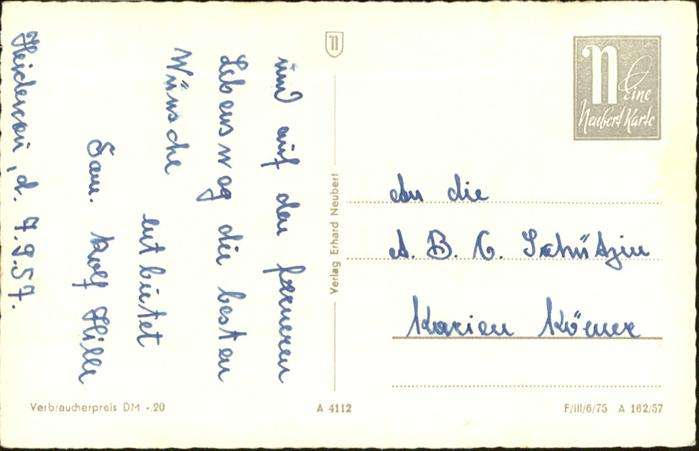 und auf den ferneren
Lebensweg die besten
Wünsche
entbietet
Fam. Rolf Hille
d. 7.9.57.
N
Verlag Erhard Neubert
N
Eine
Neubert Karte
An die
A. B. C. Schützin
Marion Körner
Verbraucherpreis DM -.20
A 4112
F/III/6/75 A 162/57